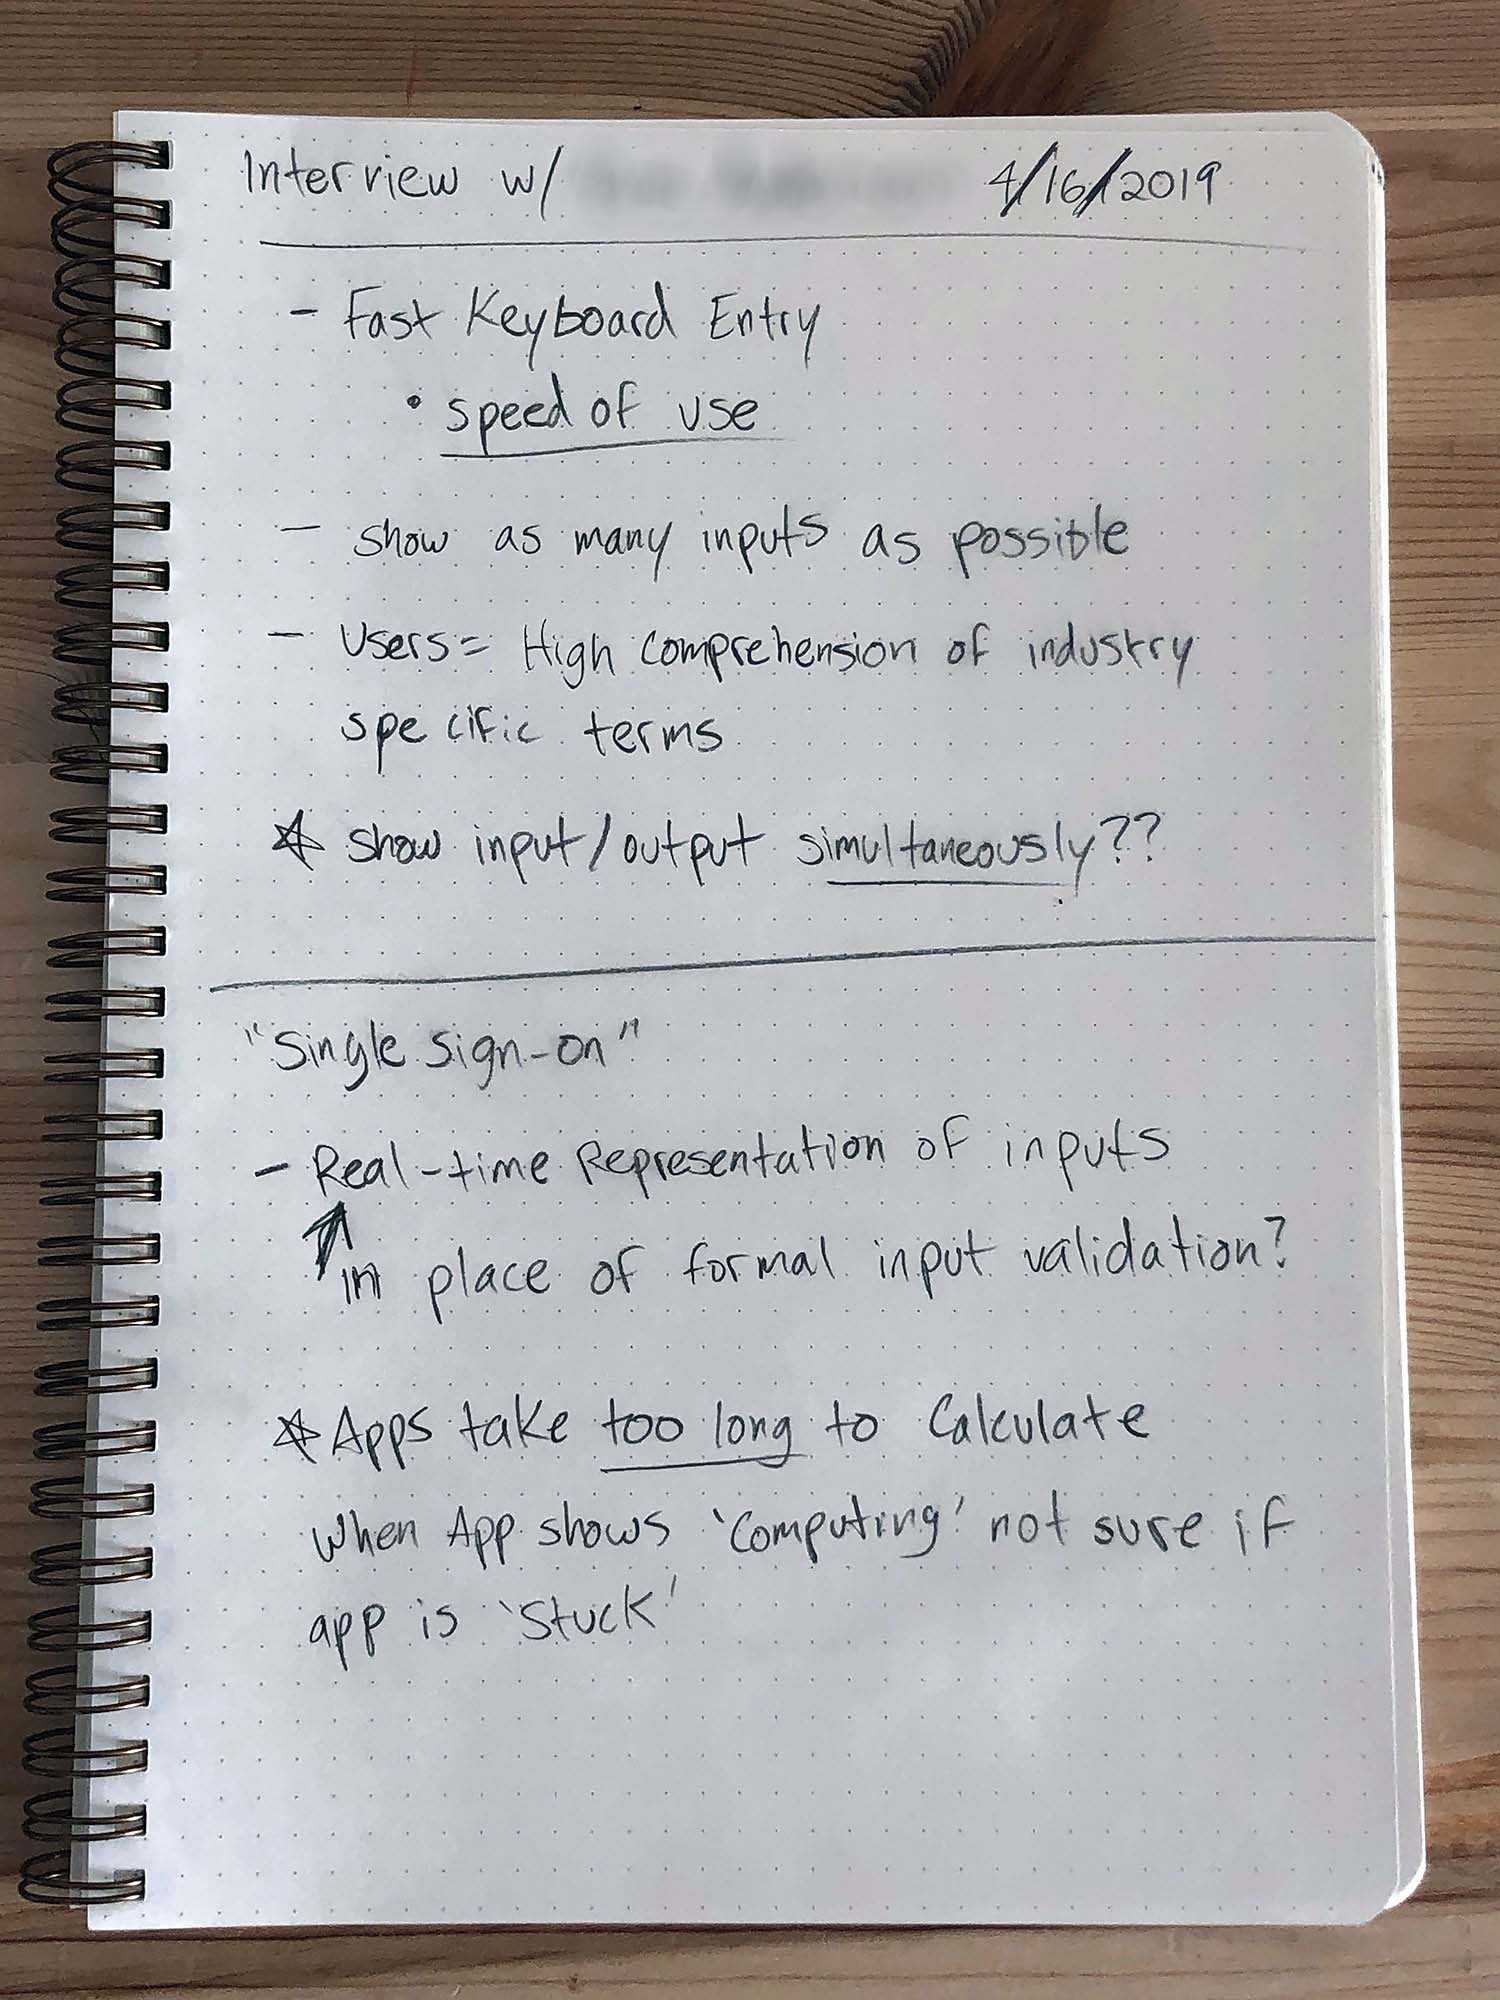 Interview w/ 4/16/2019
- Fast Keyboard Entry
• speed of use
- show as many inputs as possible
- Users = High comprehension of industry
specific terms
☆ show input/output simultaneously??
"Single Sign-on"
- Real-time Representation of inputs
in place of formal input validation?
☆ Apps take too long to Calculate
When App shows 'Computing' not sure if
app is 'Stuck'